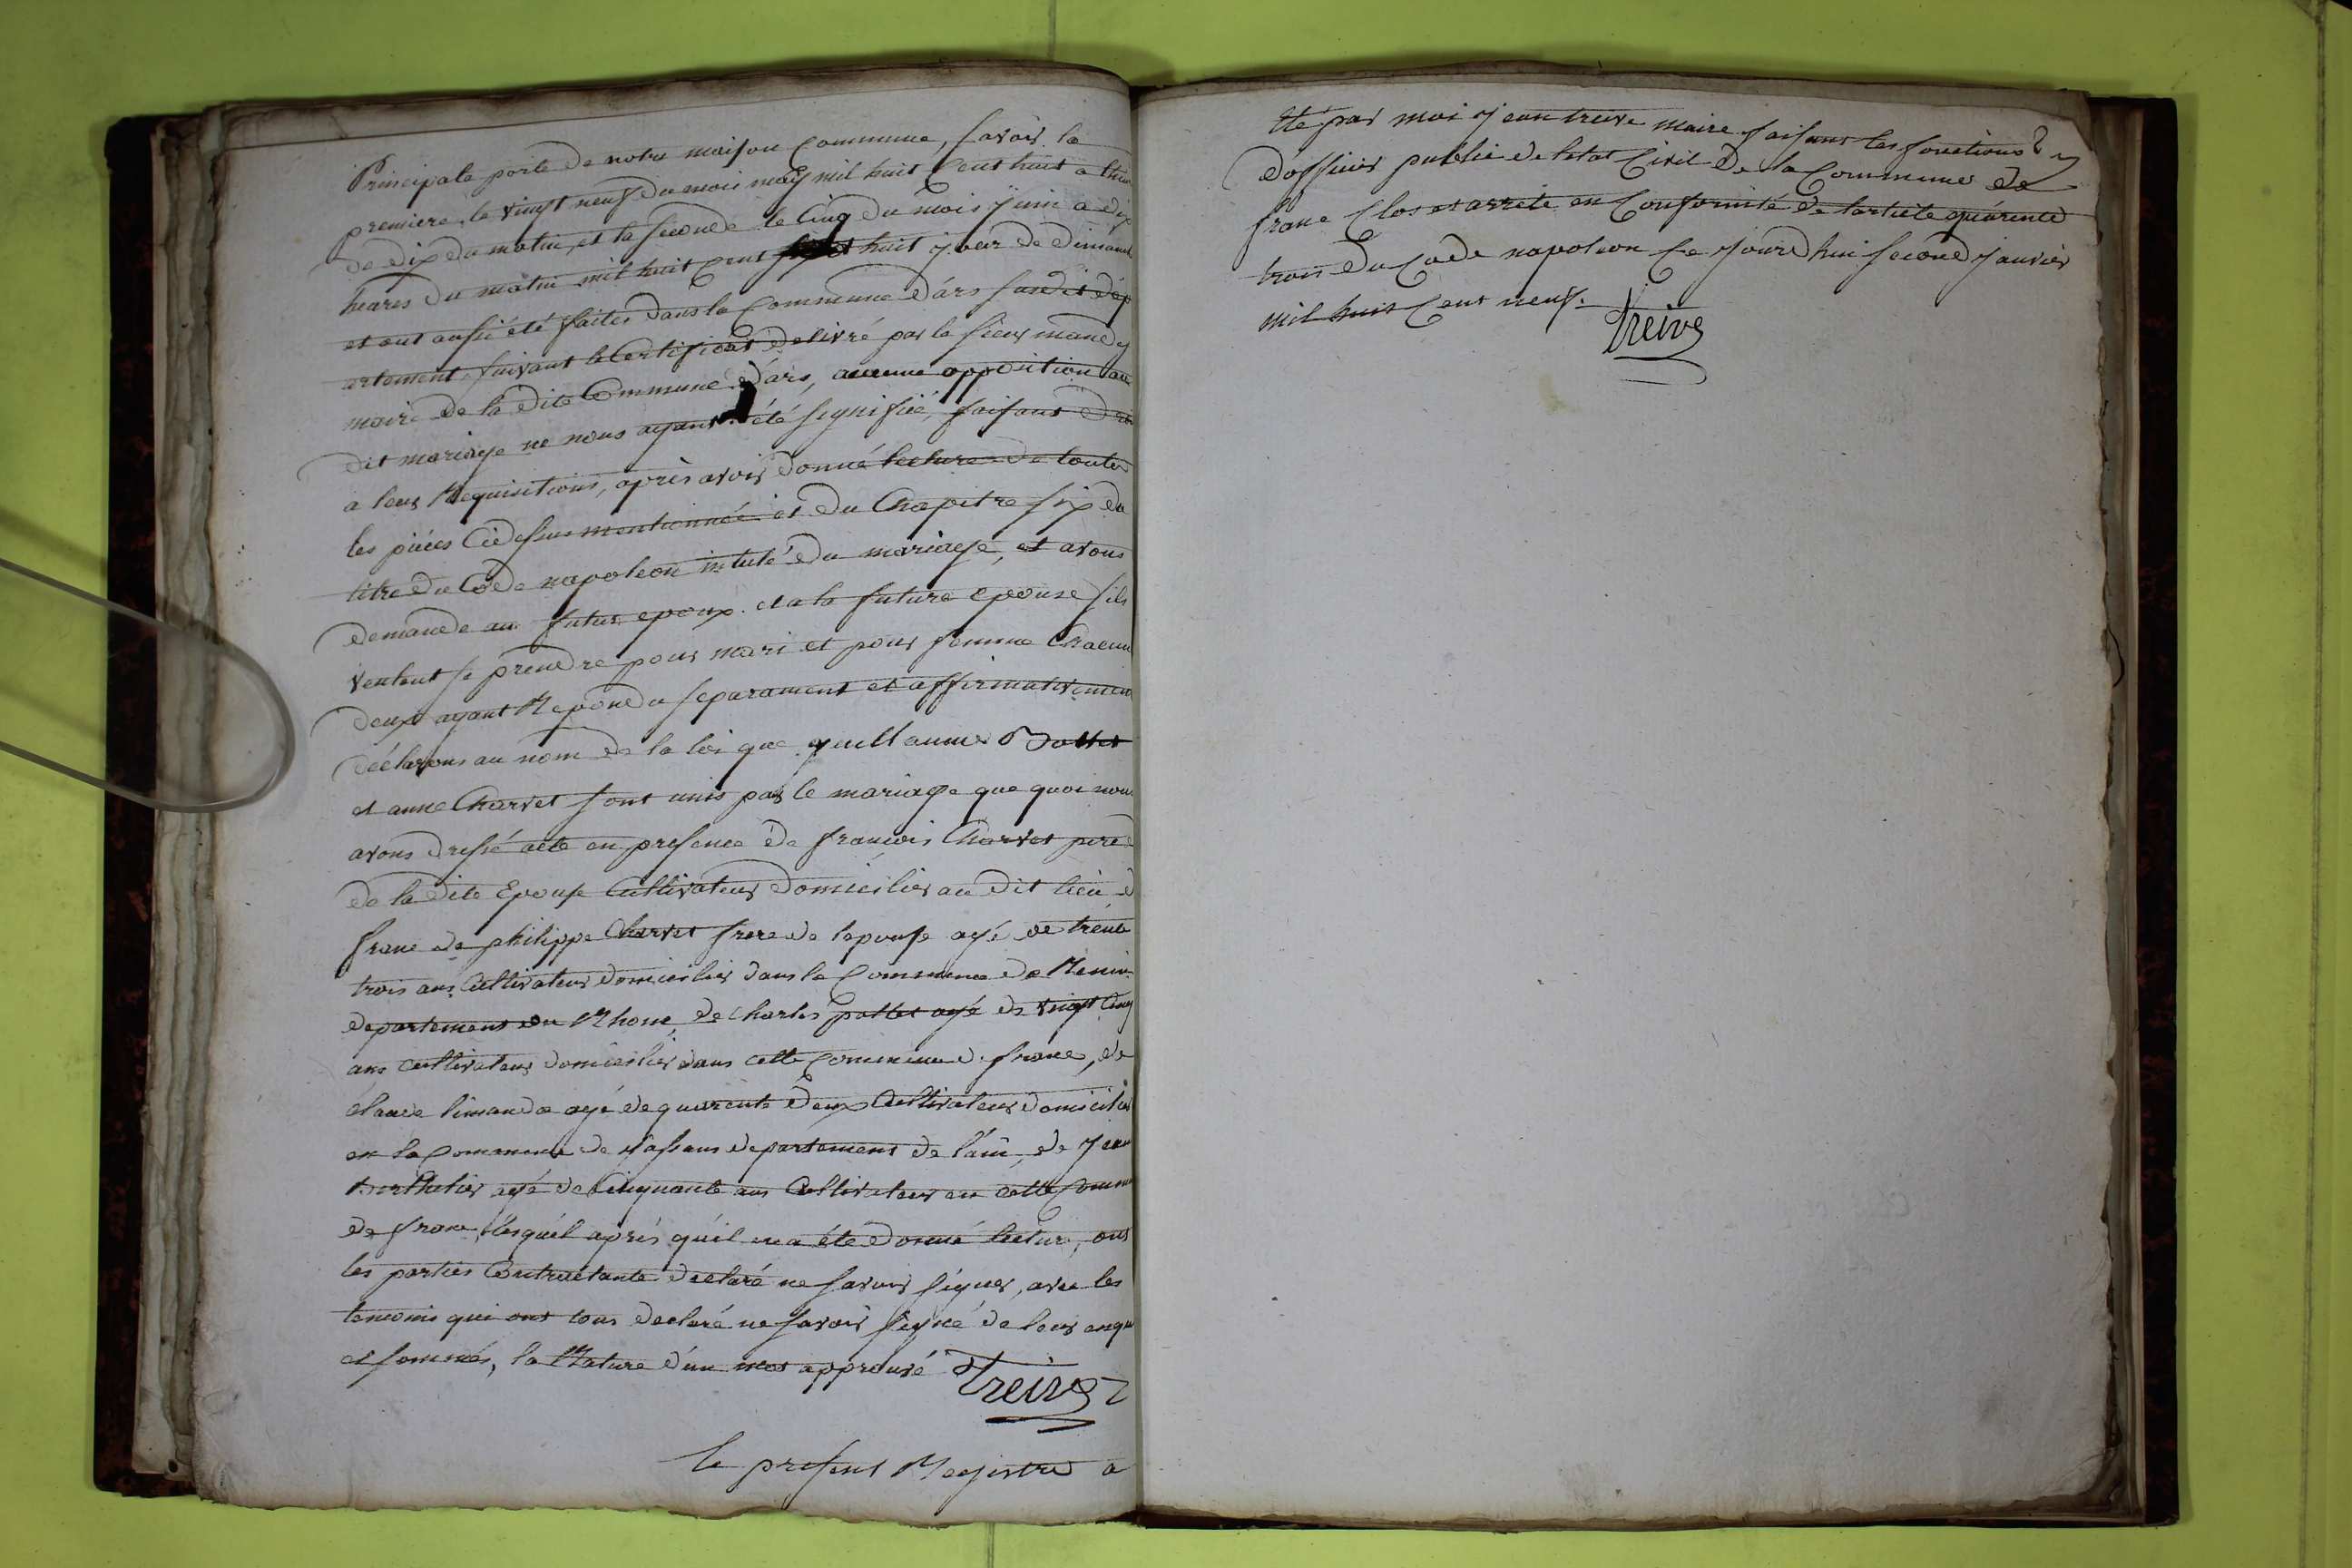 Principale porte de notre maison commune, savoir la
premiere le vingt neuf du mois may mil huit cent huit a
de dix du matin, et la seconde le cinq du mois juin a dix
heures du matin mil huit cent huit jour de dimanc
et ont aussi été faites dans la commune d'ars susdit dép
artement suivant le certificat delivré par le sieur
maire de la dite commune d'ars, aucune opposition au
dit mariage ne nous ayant été signifié, faisant dro
a leur Requisitions, après avoir donné lecture de toute
les pièces cidessus mentionnée et du Chapitre six du
titre du Code napoleon intitulé du mariage, et avons
demande au futur epoux et a la future epouse sils
veulent se prendre pour mari et pour femme Chacun
deux ayant Repondu separament et affirmativemen
déclarons au nom de la loi que guillaume
et anne Charvet sont unis par le mariage que quoi nou
avons dressé acte en presence de francois Charvet pere
de la dite Epouse Cultivateur domicilier au dit lieu d
frane de philippe Charvet frere de lepouse agé de trente
trois ans Cultivateur domicilier dans la commune de
departement du Rhone, de charles pollet agé de vingt cinq
ans cultivateur domicilier dans cette commune de frane, de
claude limandâ agé de quarente deux Cultivateur domicilier
en la commune de massans departement de l'ain, de jean
berthelier agé de Cinquante ans Cultivateur en cette Comm
de frane, lesquel après qu'il en a été donné lecture, ont
les parties Contractante declaré ne savoir signer, avec les
temoins qui ont tous declaré ne savoir signé de leur enqu
et sommés, la Rature d'un mot approuvé Treive
le present Registre a
été par moi jean treive maire faisant les fonctions
d'officier public de letat Civil de la Commune de
frane Clos et arrete en Conformité de lartiete quárente
trois du Code napoleon Ce jourdhui second janvier
mil huit Cent neuf. Treive